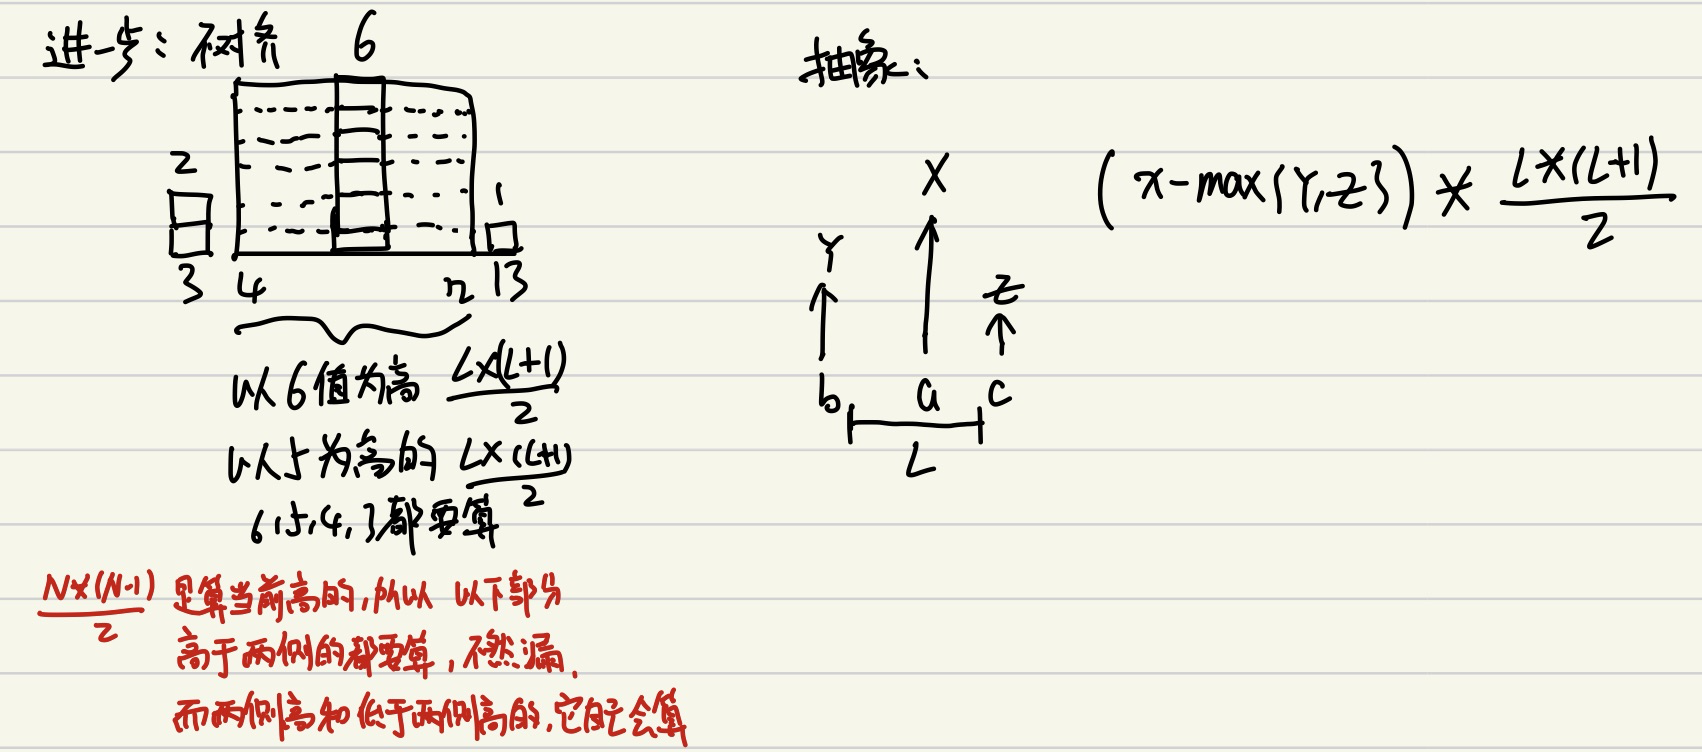 进一步：树条
6
2
1
3 4 n 13
以6值为高 L×(L+1)/2
以5为高的 L×(L+1)/2
6,5,4,3都要算
N*(N-1)/2 是算当前高的,所以 以下部分
高于两侧的都要算,不然漏.
而两侧高和低于两侧高的,它自己会算
抽象：
X
Y
Z
b a c
L
(x-max{Y,Z})*L*(L+1)/2